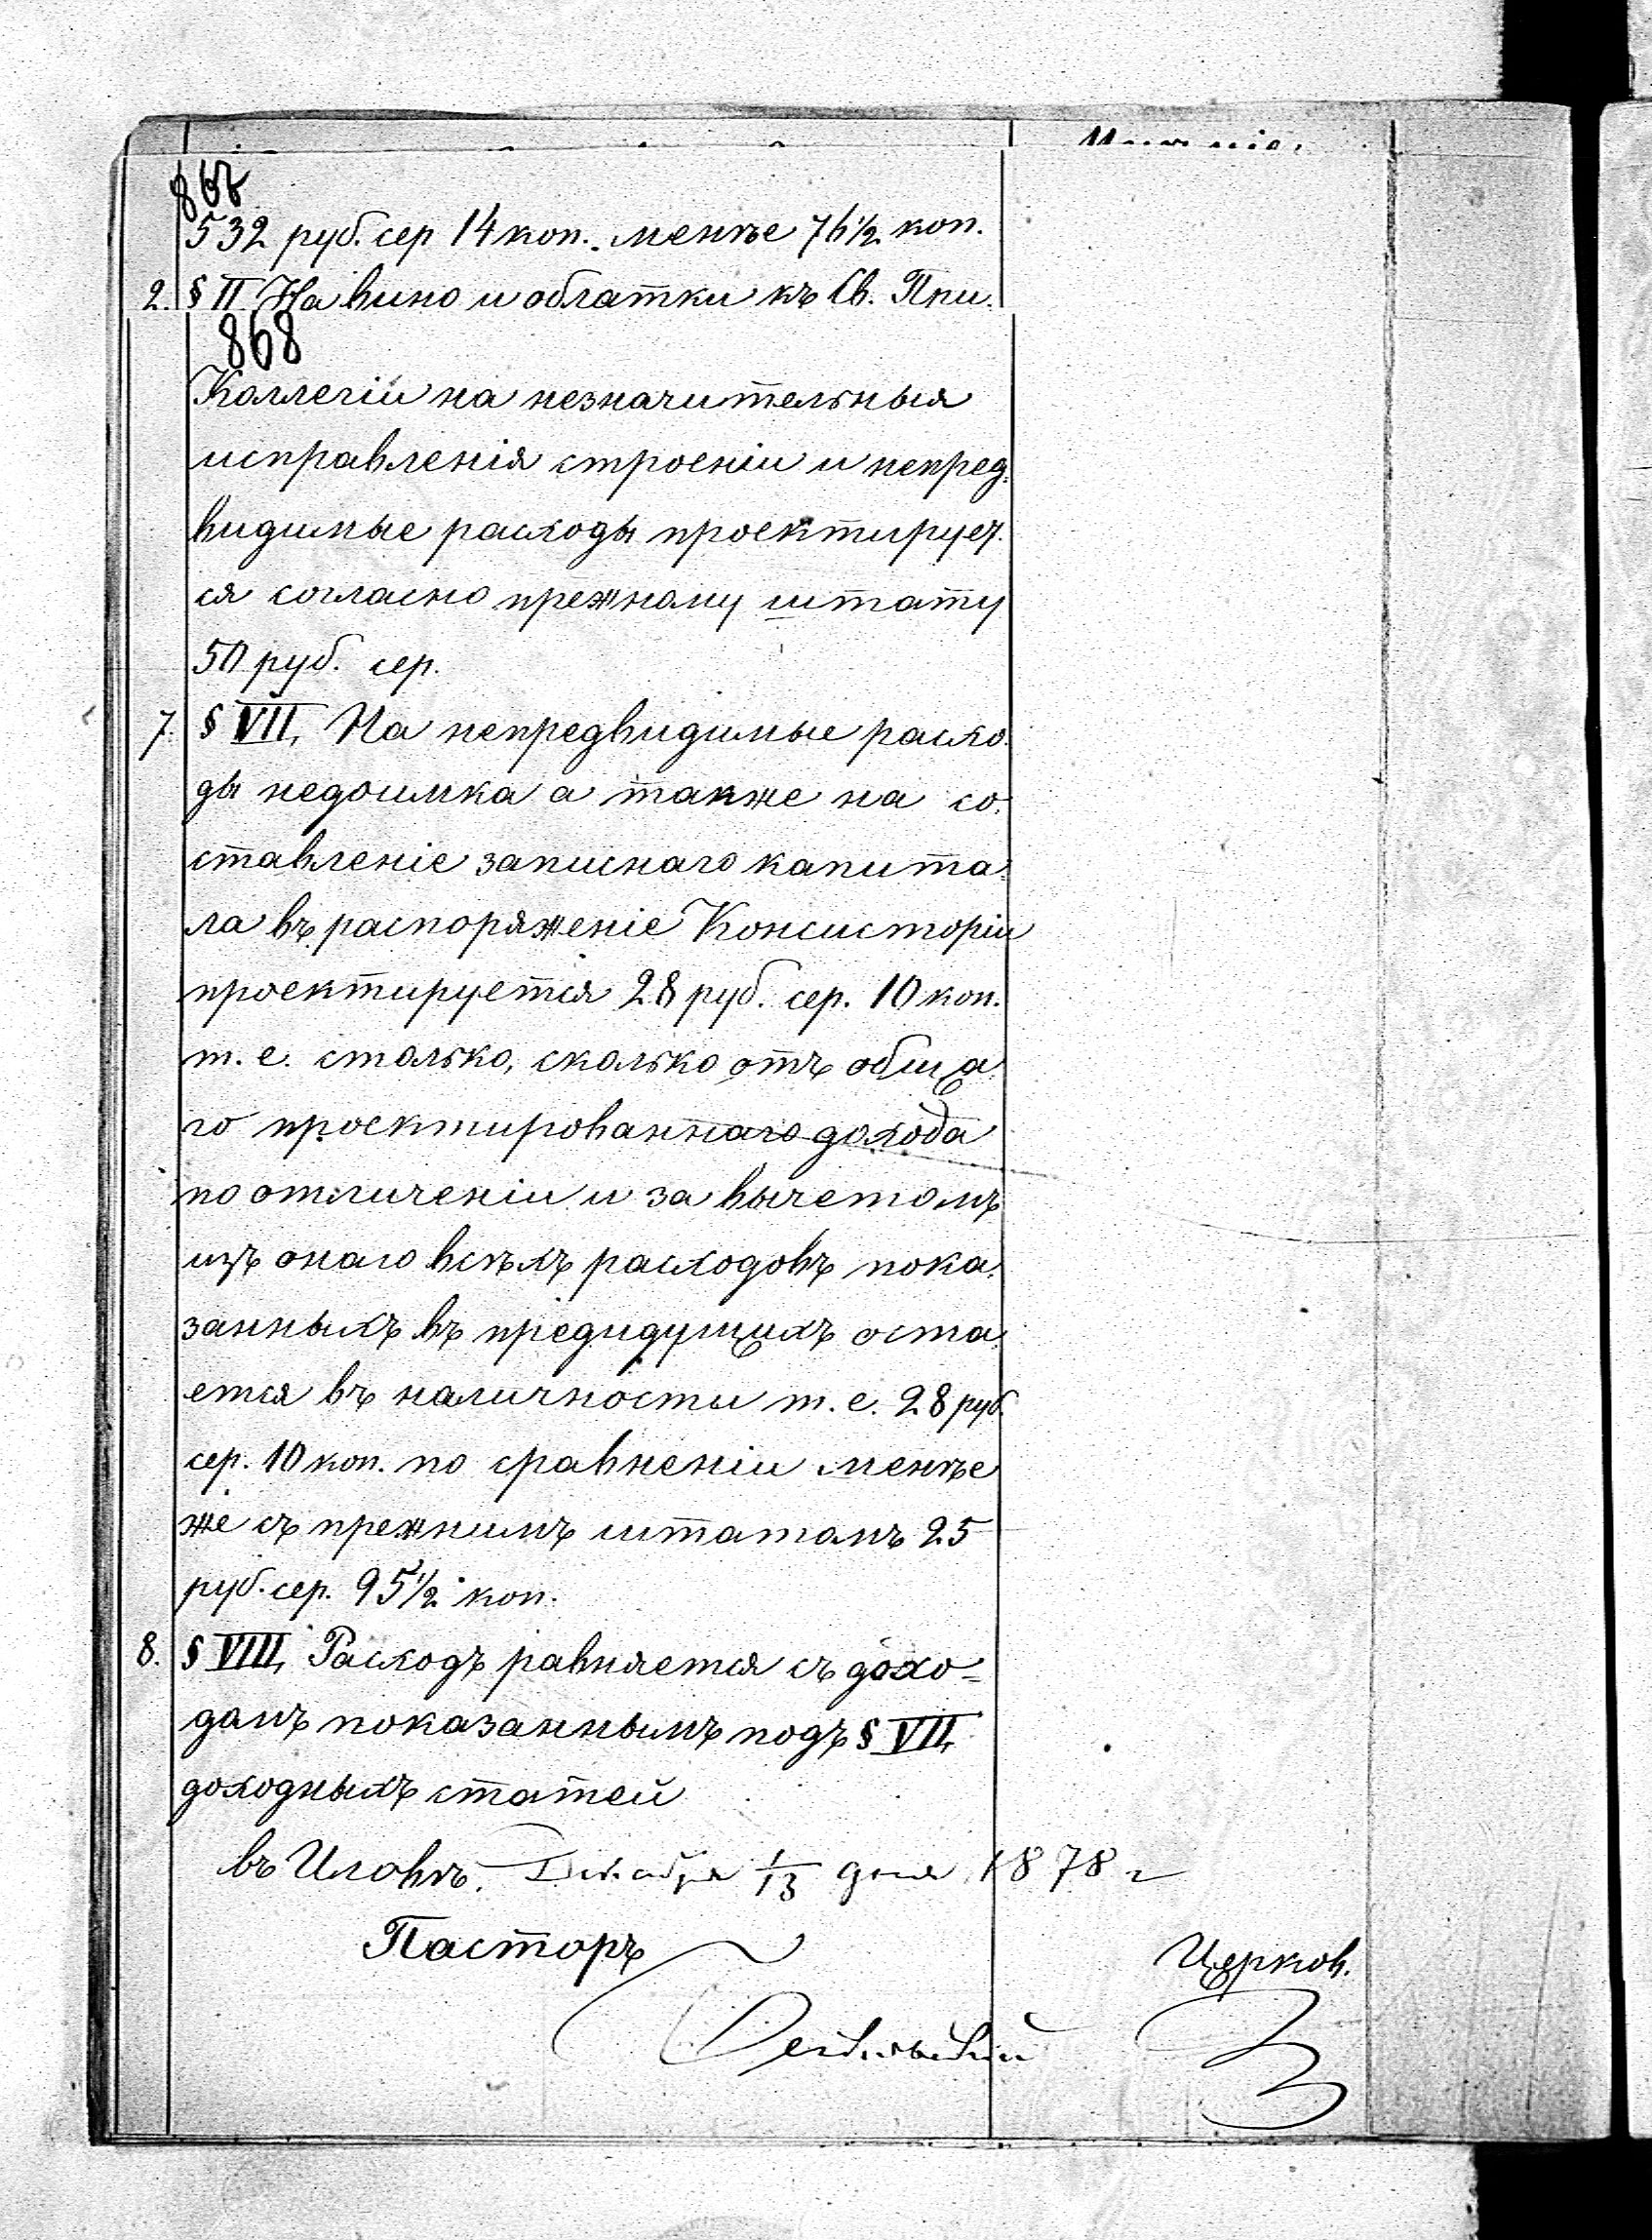 532 руб. сер 14 коп. менѣе 76½ коп.
2. § II На вино и облатки къ Св. При.
868
Коллегіи на незначительныя
исправленія строеніи и непред-
видимые расходы проектирует.
ся согласно прежному штату
50 руб. сер.
7. § VII, На непредвидимые расхо.
ды недоимка а также на со.
ставленіе записнаго капита.
ла въ распоряженіе Консисторіи
проектируется 28 руб. сер. 10 коп.
т. е. столько, сколько отъ обща.
го проектированнаго дохода
по отличеніи и за вычетомъ
изъ онаго всѣхъ расходовъ пока.
занныхъ въ предидущихъ оста.
ется въ наличности т. е. 28 руб.
сер. 10 коп. по сравненіи менѣе
же съ прежнимъ штатомъ 25
руб. сер. 95½ коп.
8. § VIII, Расходъ равняется съ дохо=
дамъ показаннымъ подъ § VII,
доходныхъ статей
въ Иловѣ. Декабря 1/13 дня 1878 г
Пасторъ
Церков.